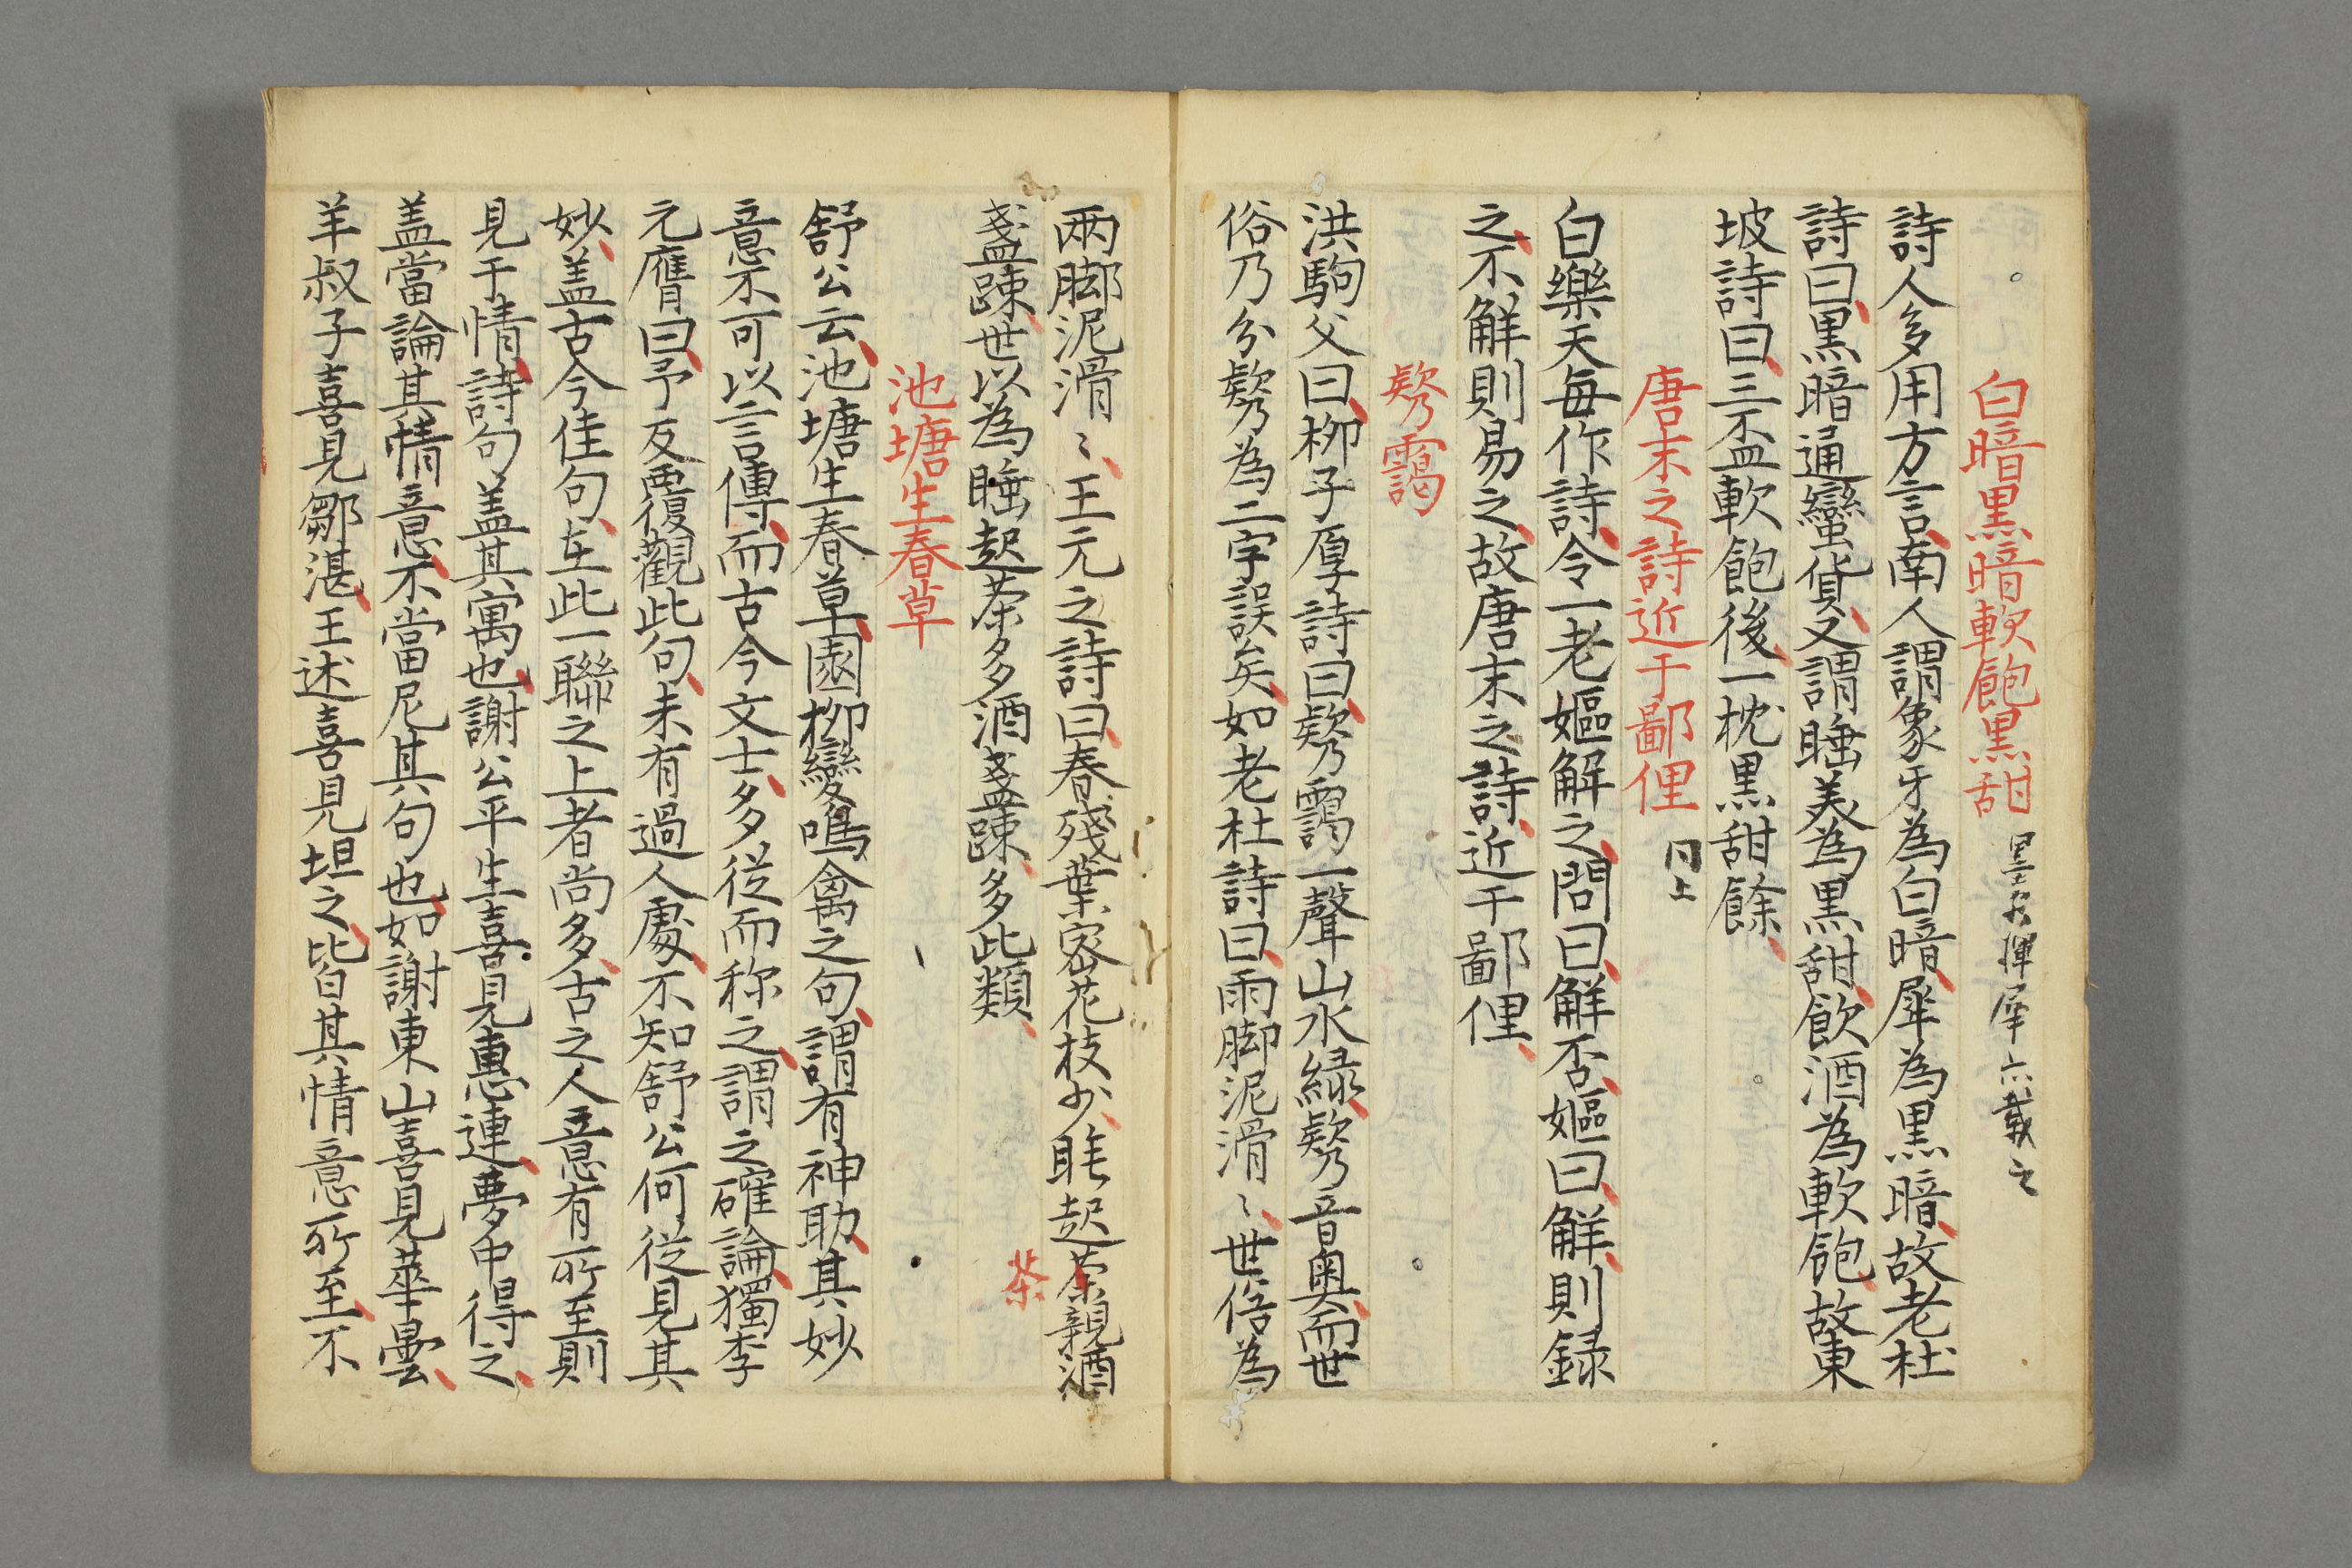 白暗黒暗軟飽黒甜 墨客揮犀六載之
詩人多用方言南人謂象牙為白暗犀為黒暗故老杜
詩曰黒暗通蠻貨又謂睡美為黒甜飲酒為軟飽故東
坡詩曰三盃軟飽後一枕黒甜餘
唐末之詩近于鄙俚 同上
白樂天毎作詩令一老嫗解之問曰觧否嫗曰觧則録
之不觧則易之故唐末之詩近于鄙俚
欵乃靄
洪駒父曰柳子厚詩曰欵乃靄一聲山水緑欵乃音奥而世
俗乃分欵乃為二字誤矣如老杜詩曰雨脚泥滑〻世俗為
兩脚泥滑〻王元之詩曰春殘葉密花枝少睡起茶親酒
盞踈世以為睡起茶多酒盞踈多此類
茶
池塘生春草
舒公云池塘生春草園柳變鳴禽之句謂有神助其妙
意不可以言傳而古今文士多従而称之謂之確論獨李
元膺曰予反覆觀此句未有過人處不知舒公何従見其
妙盖古今佳句在此一聯之上者尚多古之人意有所至則
見于情詩句盖其寓也謝公平生喜見惠連夢中得之
盖當論其情意不當尼其句也如謝東山喜見羊曇
羊叔子喜見鄒湛王述喜見坦之皆其情意所至不